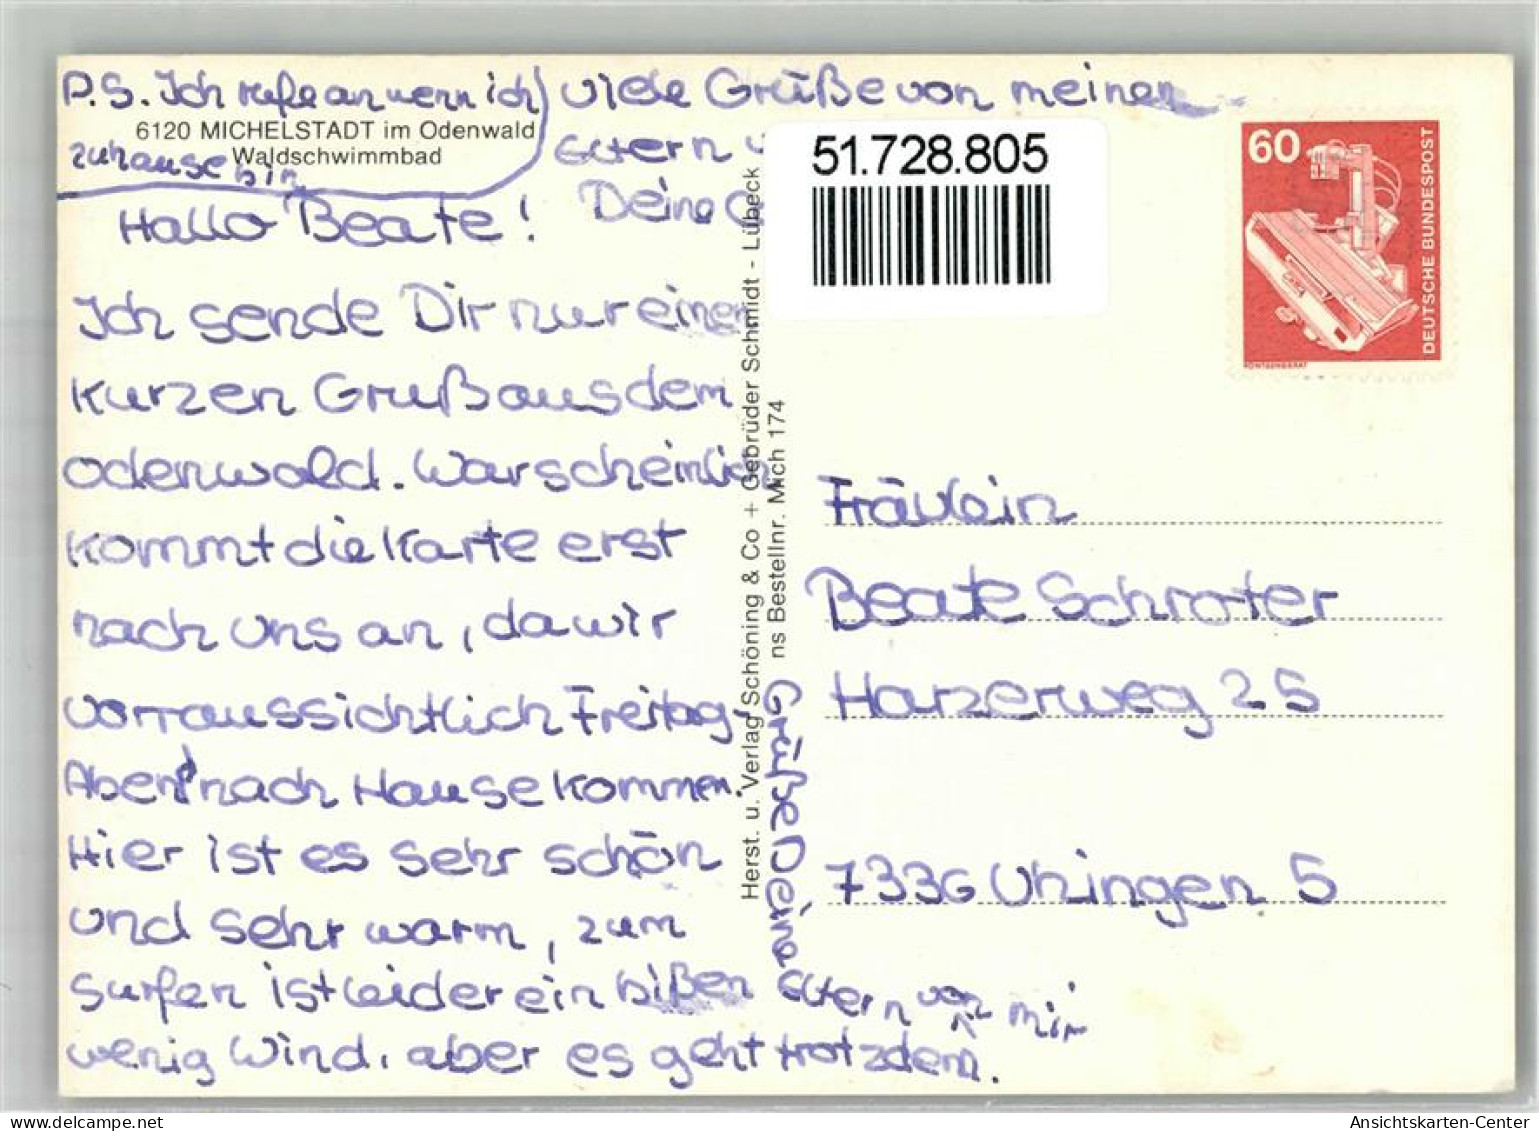 P.S. Ich rufe an wenn ich
zuhause bin
6120 MICHELSTADT im Odenwald
Waldschwimmbad
Hallo Beate!
Ich sende Dir nur einen
kurzen Gruß aus dem
Odenwald. Warscheinlich
kommt die Karte erst
nach uns an, da wir
vorraussichtlich Freitag
Abend nach Hause kommen.
Hier ist es sehr schön
und sehr warm, zum
surfen ist leider ein bißen
wenig Wind, aber es geht trotzdem.
Viele Grüße von meinen
Eltern u
Deine
Grüße Deine Eltern von mir
Herst. u. Verlag Schöning & Co + Gebrüder Schmidt - Lübeck
ns Bestellnr. Mich 174
51.728.805
60
DEUTSCHE BUNDESPOST
RÖNTGENGERÄT
Fräulein
Beate Schroter
Harzerweg 25
7336 Uhingen 5
AnsichtsKarten-Center